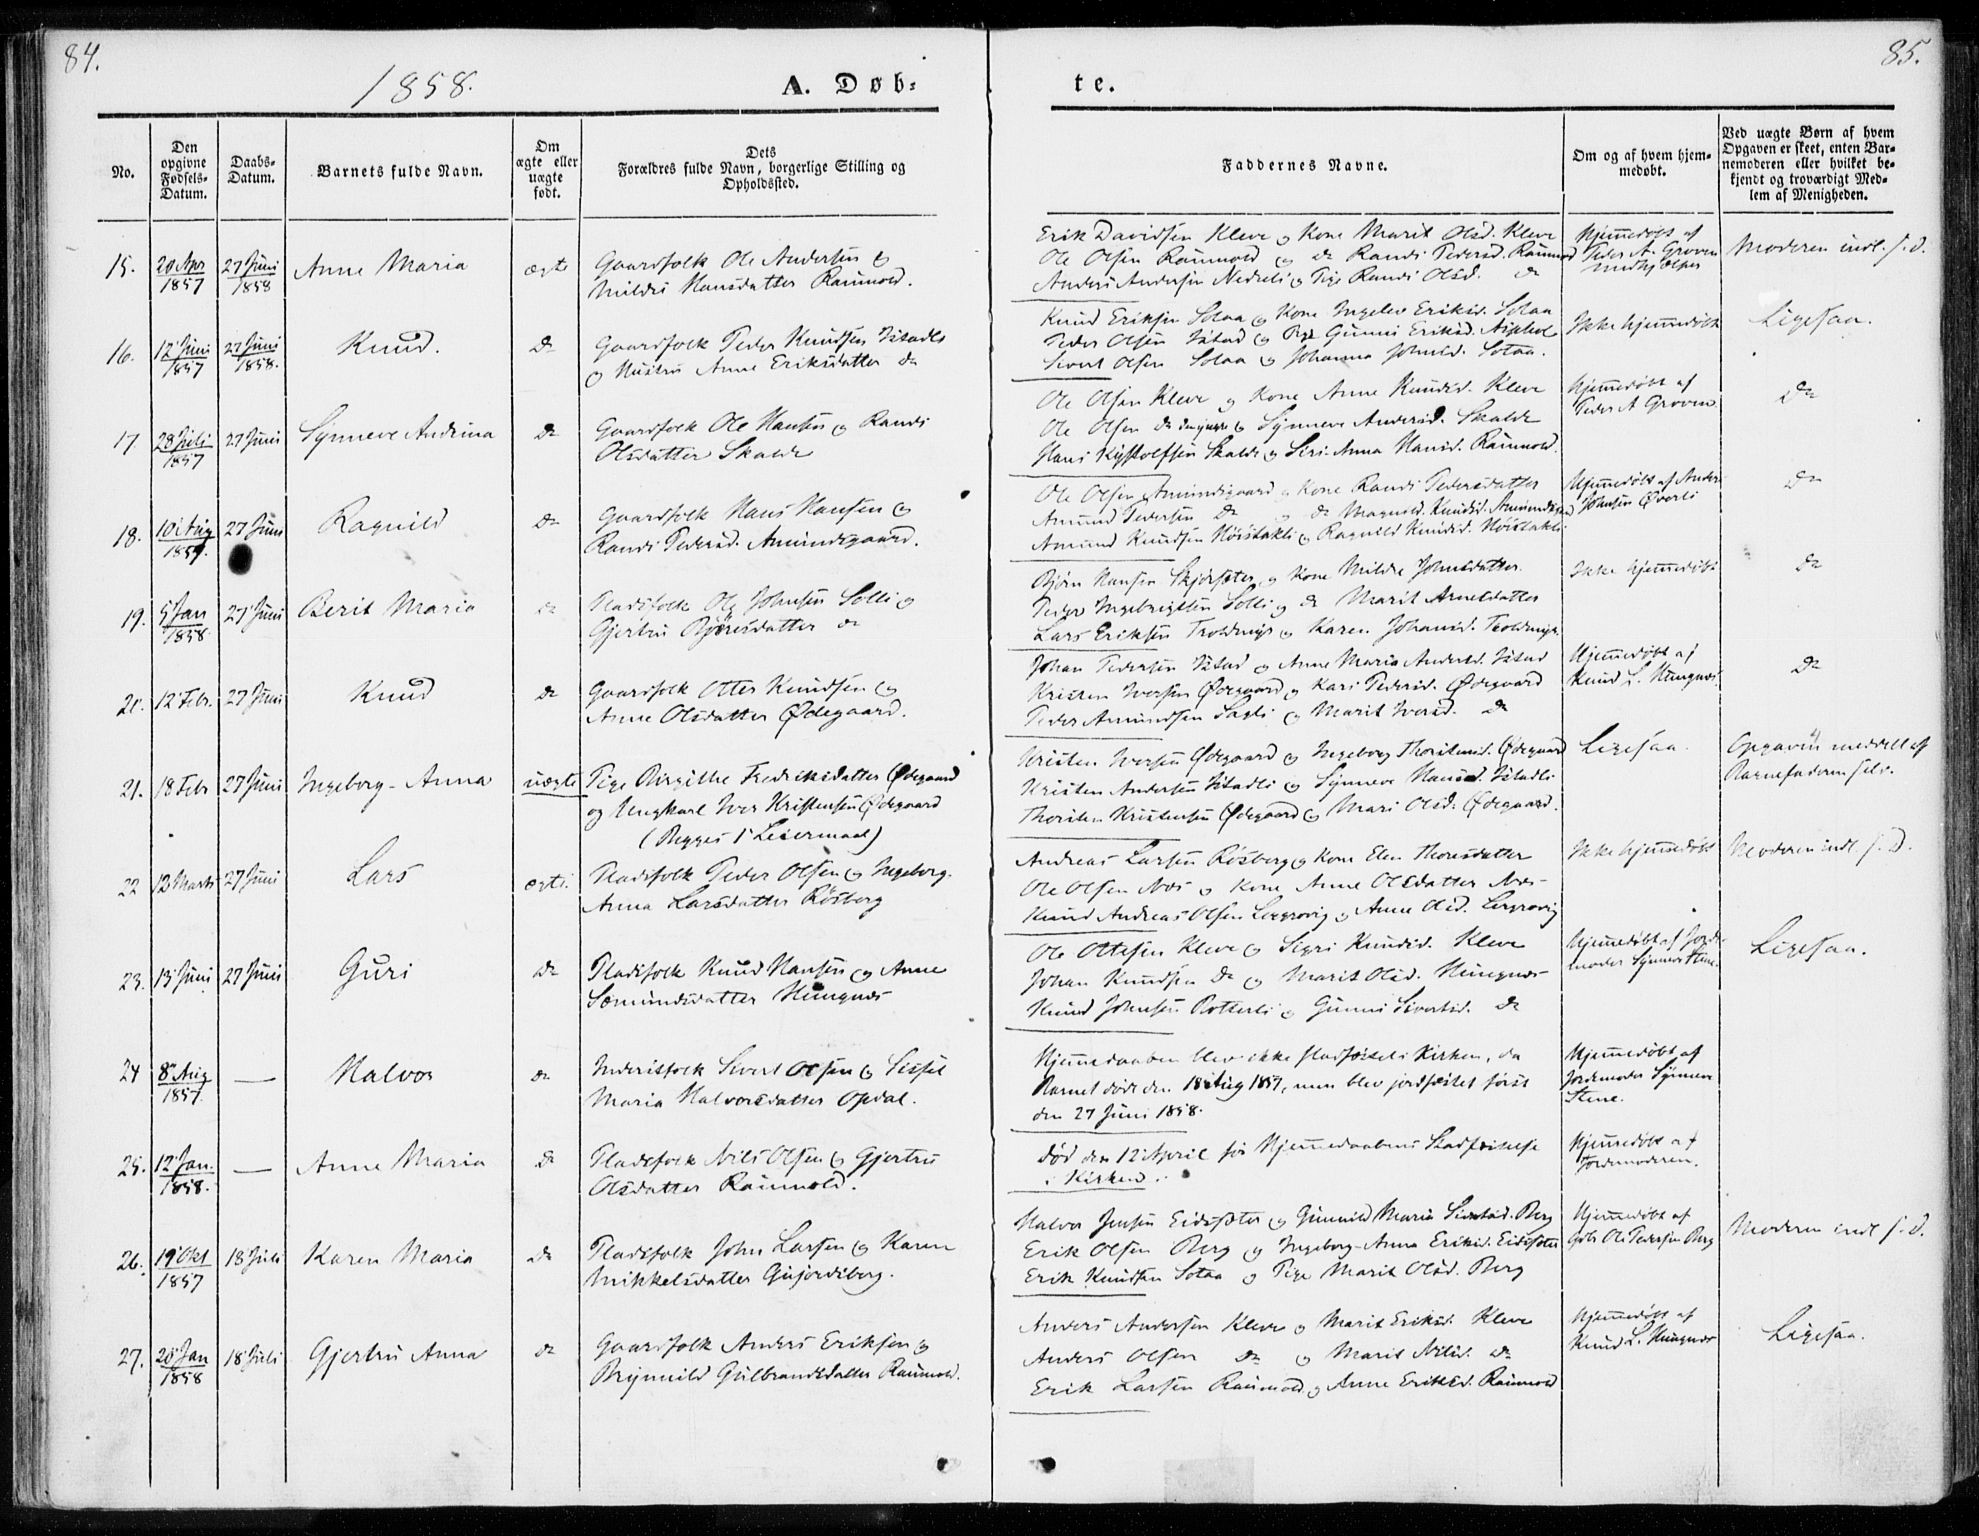 84.
1858.
A. Døb-
te.
85.
No.
Den opgivne Fødsels-Datum.
Daabs-Datum.
Barnets fulde Navn.
Om ægte eller uægte født.
Dets
Forældres fulde Navn, borgerlige Stilling og
Opholdssted.
Faddernes Navne.
Om og af hvem hjem-
medøbt.
Ved uægte Børn af hvem
Opgaven er skeet, enten Bar-
nemoderen eller hvilket be-
kjendt og troværdigt Med-
lem af Menigheden.
15. 20 Apr 1857 27 Juni 1858 Anne Maria ægte
Gaardfolk Ole Andersen &
Mildri Hansdatter Raumold.
Erik Davidsen Kleve & Kone Marit Olsd. Kleve
Ole Olsen Raumold & do Randi Pedersd. Raumold
Anders Andersen Nedreli & Pige Randi Olsd. do
Hjemmedøbt af
Peder A. Groven
Moderen indl. s. D.
16. 12 Juni 1857 27 Juni 1858. Knud. do
Gaardfolk Peder Knudsen Istadli
& Hustru Anne Eriksdatter do
Knud Eriksen Sotaa & Kone Ingelev Eriksd. Sotaa
Peder Olsen Istad & Pige Gunni Eriksd.
Sivert Olsen Sotaa & Johanna Johnsd. Sotaa.
Ikke hjemmedøbt
Ligesaa.
17. 28 Juli 1857 27 Juni Synneve Andrina do
Gaardfolk Ole Hansen & Randi
Olsdatter Skalde
Ole Olsen Kleve & Kone Anne Knudsd. Kleve
Ole Olsen do den yngre & Synneve Andersd. Skalde
Hans Kristofsen Skalde & Siri Anna Hansd. Raumold.
Hjemmedøbt af
Peder A Groven
do
18. 10 Aug 1857. 27 Juni Ragnild do
Gaardfolk Hans Hansen &
Randi Pedersd. Amundsgaard.
Ole Olsen Amundsgaard & Kone Randi Pedersdatter
Amund Pedersen do & do Magnild Knudsd. Amundsgaard
Amund Knudsen Høistakli & Ragnild Knudsd. Høistakli
Hjemmedøbt af Anders
Johnsen Øverli
do
19. 5 Jan 1858. 27 Juni Berit Maria do
Pladsfolk Ole Johnsen Solli &
Gjertru Bjørnsdatter do
Bjørn Hansen Skjørsæter & Kone Mildri Johnsdatter
Peder Ingebrigtsen Solli & do Marit Arnesdatter
Lars Eriksen Troldmyr & Karen Johansd. Troldmyr.
Ikke hjemmedøbt
do
20. 12 Febr. 27 Juni Knud do
Gaardfolk Otter Knudsen &
Anne Olsdatter Ødegaard.
Johan Pedersen Istad & Anne Maria Andersd. Istad
Kristen Iversen Ødegaard & Kari Pedersd. Ødegaard
Peder Amundsen Sagli & Marit Iversd. do
Hjemmedøbt af
Knud L. Hungnæs
do
21. 18 Febr 27 Juni Ingeborg-Anna uægte
Pige Birgithe Fredriksdatter Ødegaard
og Ungkarl Iver Kristensen Ødegaard
(Begges 1ste Leiermaal)
Kristen Iversen Ødegaard & Ingeborg Thorstensd. Ødegaard
Kristen Andersen Istadli & Synneve Hansd. Istadli
Thorsten Kristensen Ødegaard & Mari Olsd. Ødegaard.
Ligesaa.
Opgaven meddelt af
Barnefaderen selv.
22 12 Marts 27 Juni Lars ægte.
Pladsfolk Peder Olsen & Ingeborg-
Anna Larsdatter Røsberg
Andreas Larsen Røsberg & Kone Elen Thoresdatter
Ole Olsen Næs & Kone Anne Olsdatter Næs
Knud Andreas Olsen Lergrovig & Anne Olsd. Lergrovig
Ikke hjemmedøbt
Moderen indl. s. D.
23. 13 Juni 27 Juni Guri do
Pladsfolk Knud Hansen & Anne
Sæmundsdatter Hungnæs
Ole Ottesen Kleve & Sigri Knudsd. Kleve
Johan Knudsen do & Marit Olsd. Hungnæs
Knud Johnsen Rotterli & Gunni Sivertsd. do
Hjemmedøbt af Jorde-
moder Synneve Stene.
Ligesaa.
24 8 Aug 1857. — Halvor do
Inderstfolk Sivert Olsen & Sissel
Maria Halvorsdatter Opdal.
Hjemmedaaben blev ikke stadfæstet i Kirken, da
Barnet døde den 18 Aug 1857, men blev jordfæstet først
den 27 Juni 1858.
Hjemmedøbt af
Jordemoder Synneve
Stene.
25. 12 Jan. 1858. — Anne Maria do
Pladsfolk Nils Olsen & Gjertru
Olsdatter Raumold.
Død den 12 April før Hjemmedaabens Stadfæstelse
i Kirken.
Hjemmedøbt af
Jordemoderen.
26. 19 Okt 1857 18 Juli Karen Maria do
Pladsfolk John Larsen & Karen
Mikkelsdatter Gujordsberg.
Halvor Jensen Eidsæter & Gunnild Maria Sivertsd. Berg
Erik Olsen Berg & Ingeborg-Anna Eriksd. Eidsæter
Erik Knudsen Sotaa & Pige Marit Olsd. Berg
Hjemmedøbt af
Gbr. Ole Pedersen Berg
Moderen indl. s. D.
27. 20 Jan 1858 18 Juli Gjertru Anna do
Gaardfolk Anders Eriksen &
Brynnild Gulbrandsdatter Raumold.
Anders Andersen Kleve & Marit Eriksd. Kleve
Anders Olsen do & Marit Nilsd. do
Erik Larsen Raumold & Anne Eriksd. Raumold
Hjemmedøbt af
Knud L. Hungnæs
Ligesaa.